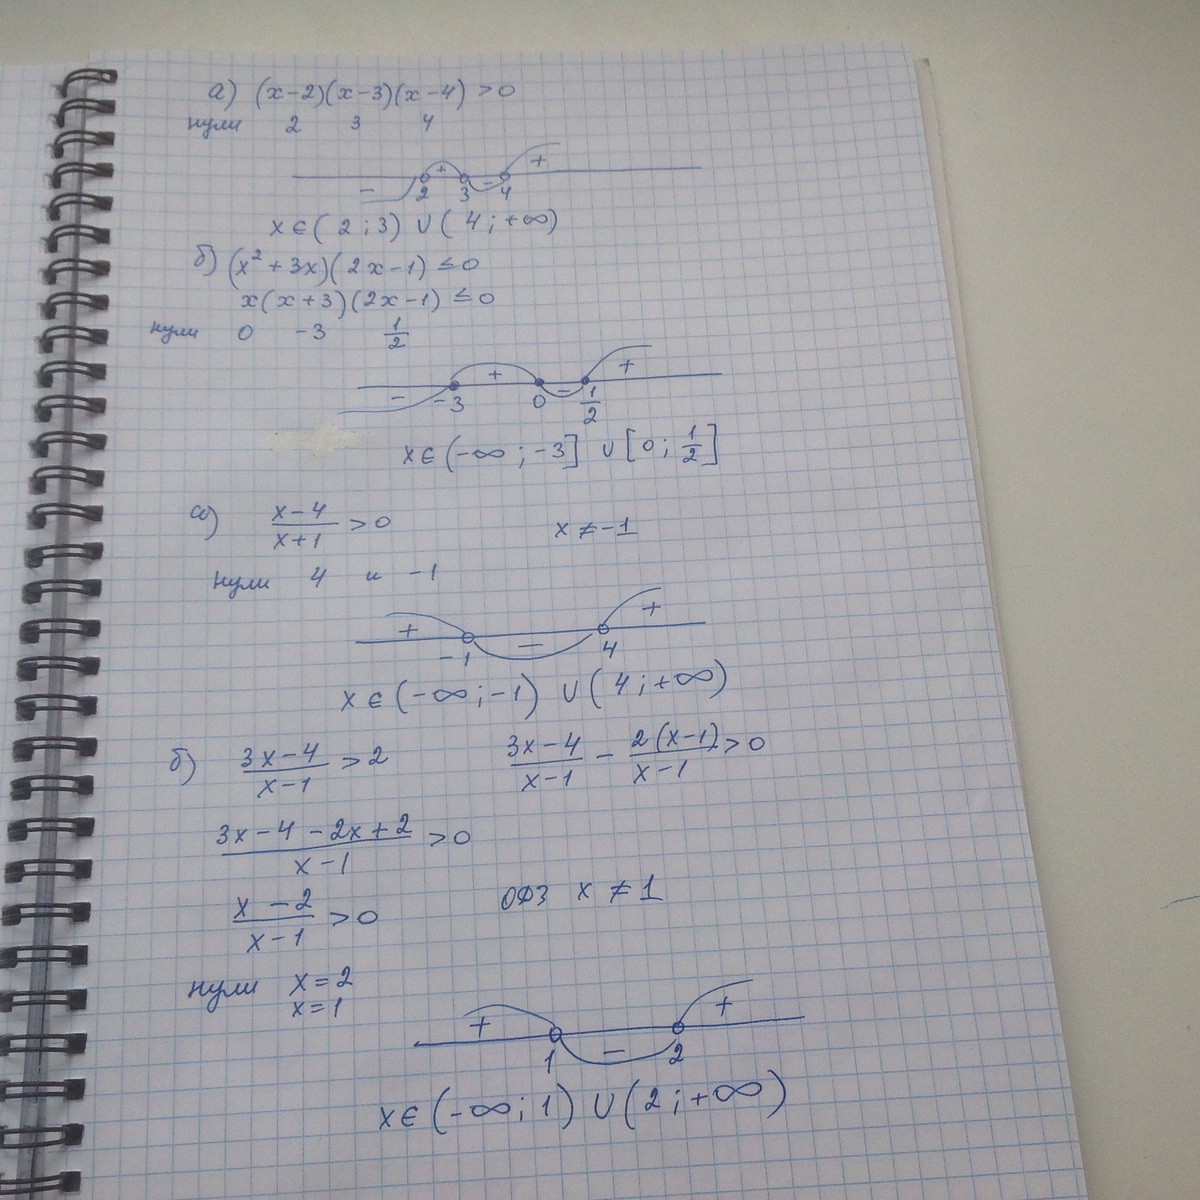 а) (x-2)(x-3)(x-4) > 0
нули 2 3 4
- + - +
2 3 4
x ∈ (2; 3) ∪ (4; +∞)
б) (x² + 3x)(2x-1) ≤ 0
x(x+3)(2x-1) ≤ 0
нули 0 -3 1/2
- + - +
-3 0 1/2
x ∈ (-∞; -3] ∪ [0; 1/2]
а) (x-4)/(x+1) > 0 x ≠ -1
нули 4 и -1
+ - +
-1 4
x ∈ (-∞; -1) ∪ (4; +∞)
б) (3x-4)/(x-1) > 2 (3x-4)/(x-1) - 2(x-1)/(x-1) > 0
(3x-4-2x+2)/(x-1) > 0
(x-2)/(x-1) > 0 ОДЗ x ≠ 1
нули x = 2
x = 1
+ - +
1 2
x ∈ (-∞; 1) ∪ (2; +∞)